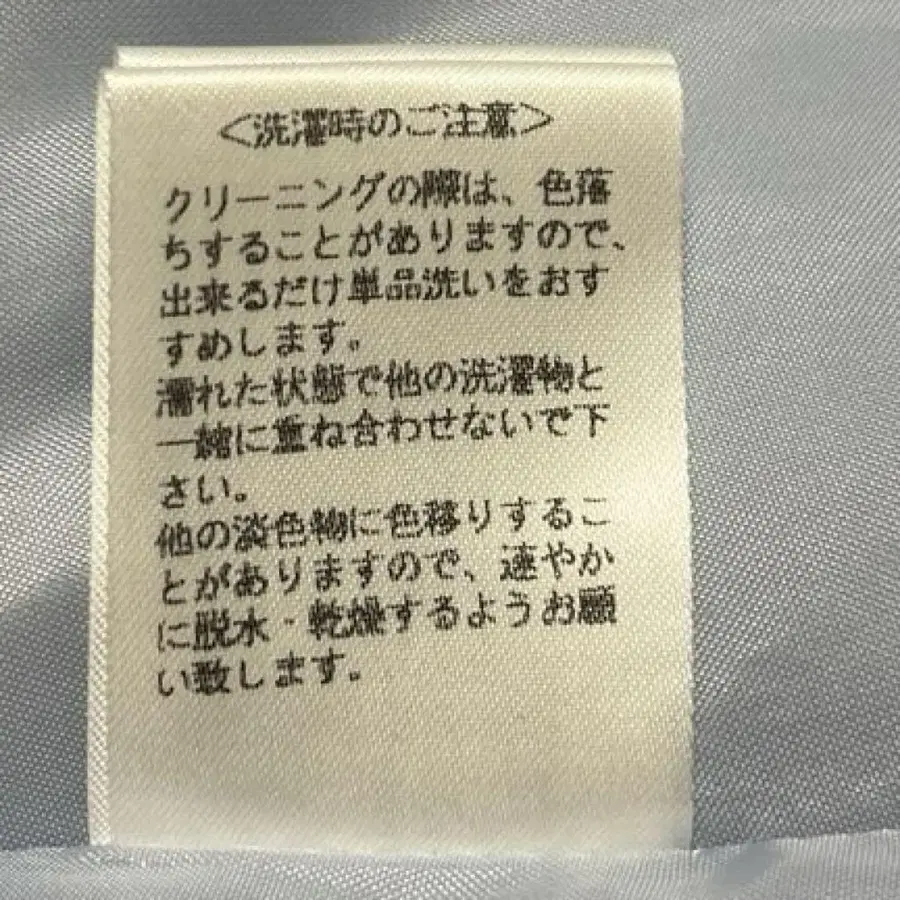 <洗濯時のご注意>
クリーニングの際は、色落
ちすることがありますので、
出来るだけ単品洗いをおす
すめします。
濡れた状態で他の洗濯物と
一緒に重ね合わせないで下
さい。
他の淡色物に色移りするこ
とがありますので、速やか
に脱水・乾燥するようお願
い致します。